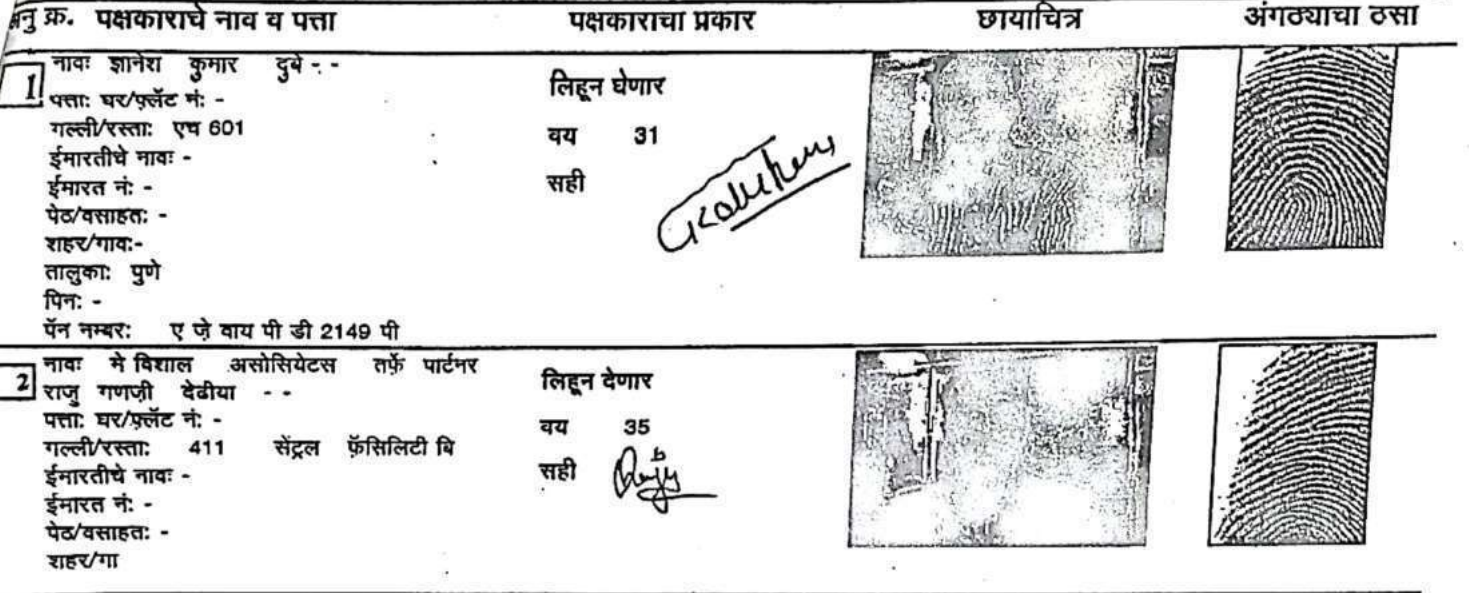 अनु क्र. पक्षकाराचे नाव व पत्ता पक्षकाराचा प्रकार छायाचित्र अंगठ्याचा ठसा
1
नावः ज्ञानेश कुमार दुबे - -
पत्ताः घर/फ़्लॅट नं: -
गल्ली/रस्ताः एच 601
ईमारतीचे नावः -
ईमारत नं: -
पेठ/वसाहतः -
शहर/गाव:-
तालुकाः पुणे
पिनः -
पॅन नम्बरः ए जे वाय पी डी 2149 पी
लिहून घेणार
वय 31
सही
2
नावः मे विशाल असोसियेटस तर्फे पार्टनर
राजु गणजी देढीया - -
पत्ताः घर/फ़्लॅट नं: -
गल्ली/रस्ताः 411 सेंट्रल फ़ॅसिलिटी बि
ईमारतीचे नावः -
ईमारत नं: -
पेठ/वसाहतः -
शहर/गा
लिहून देणार
वय 35
सही